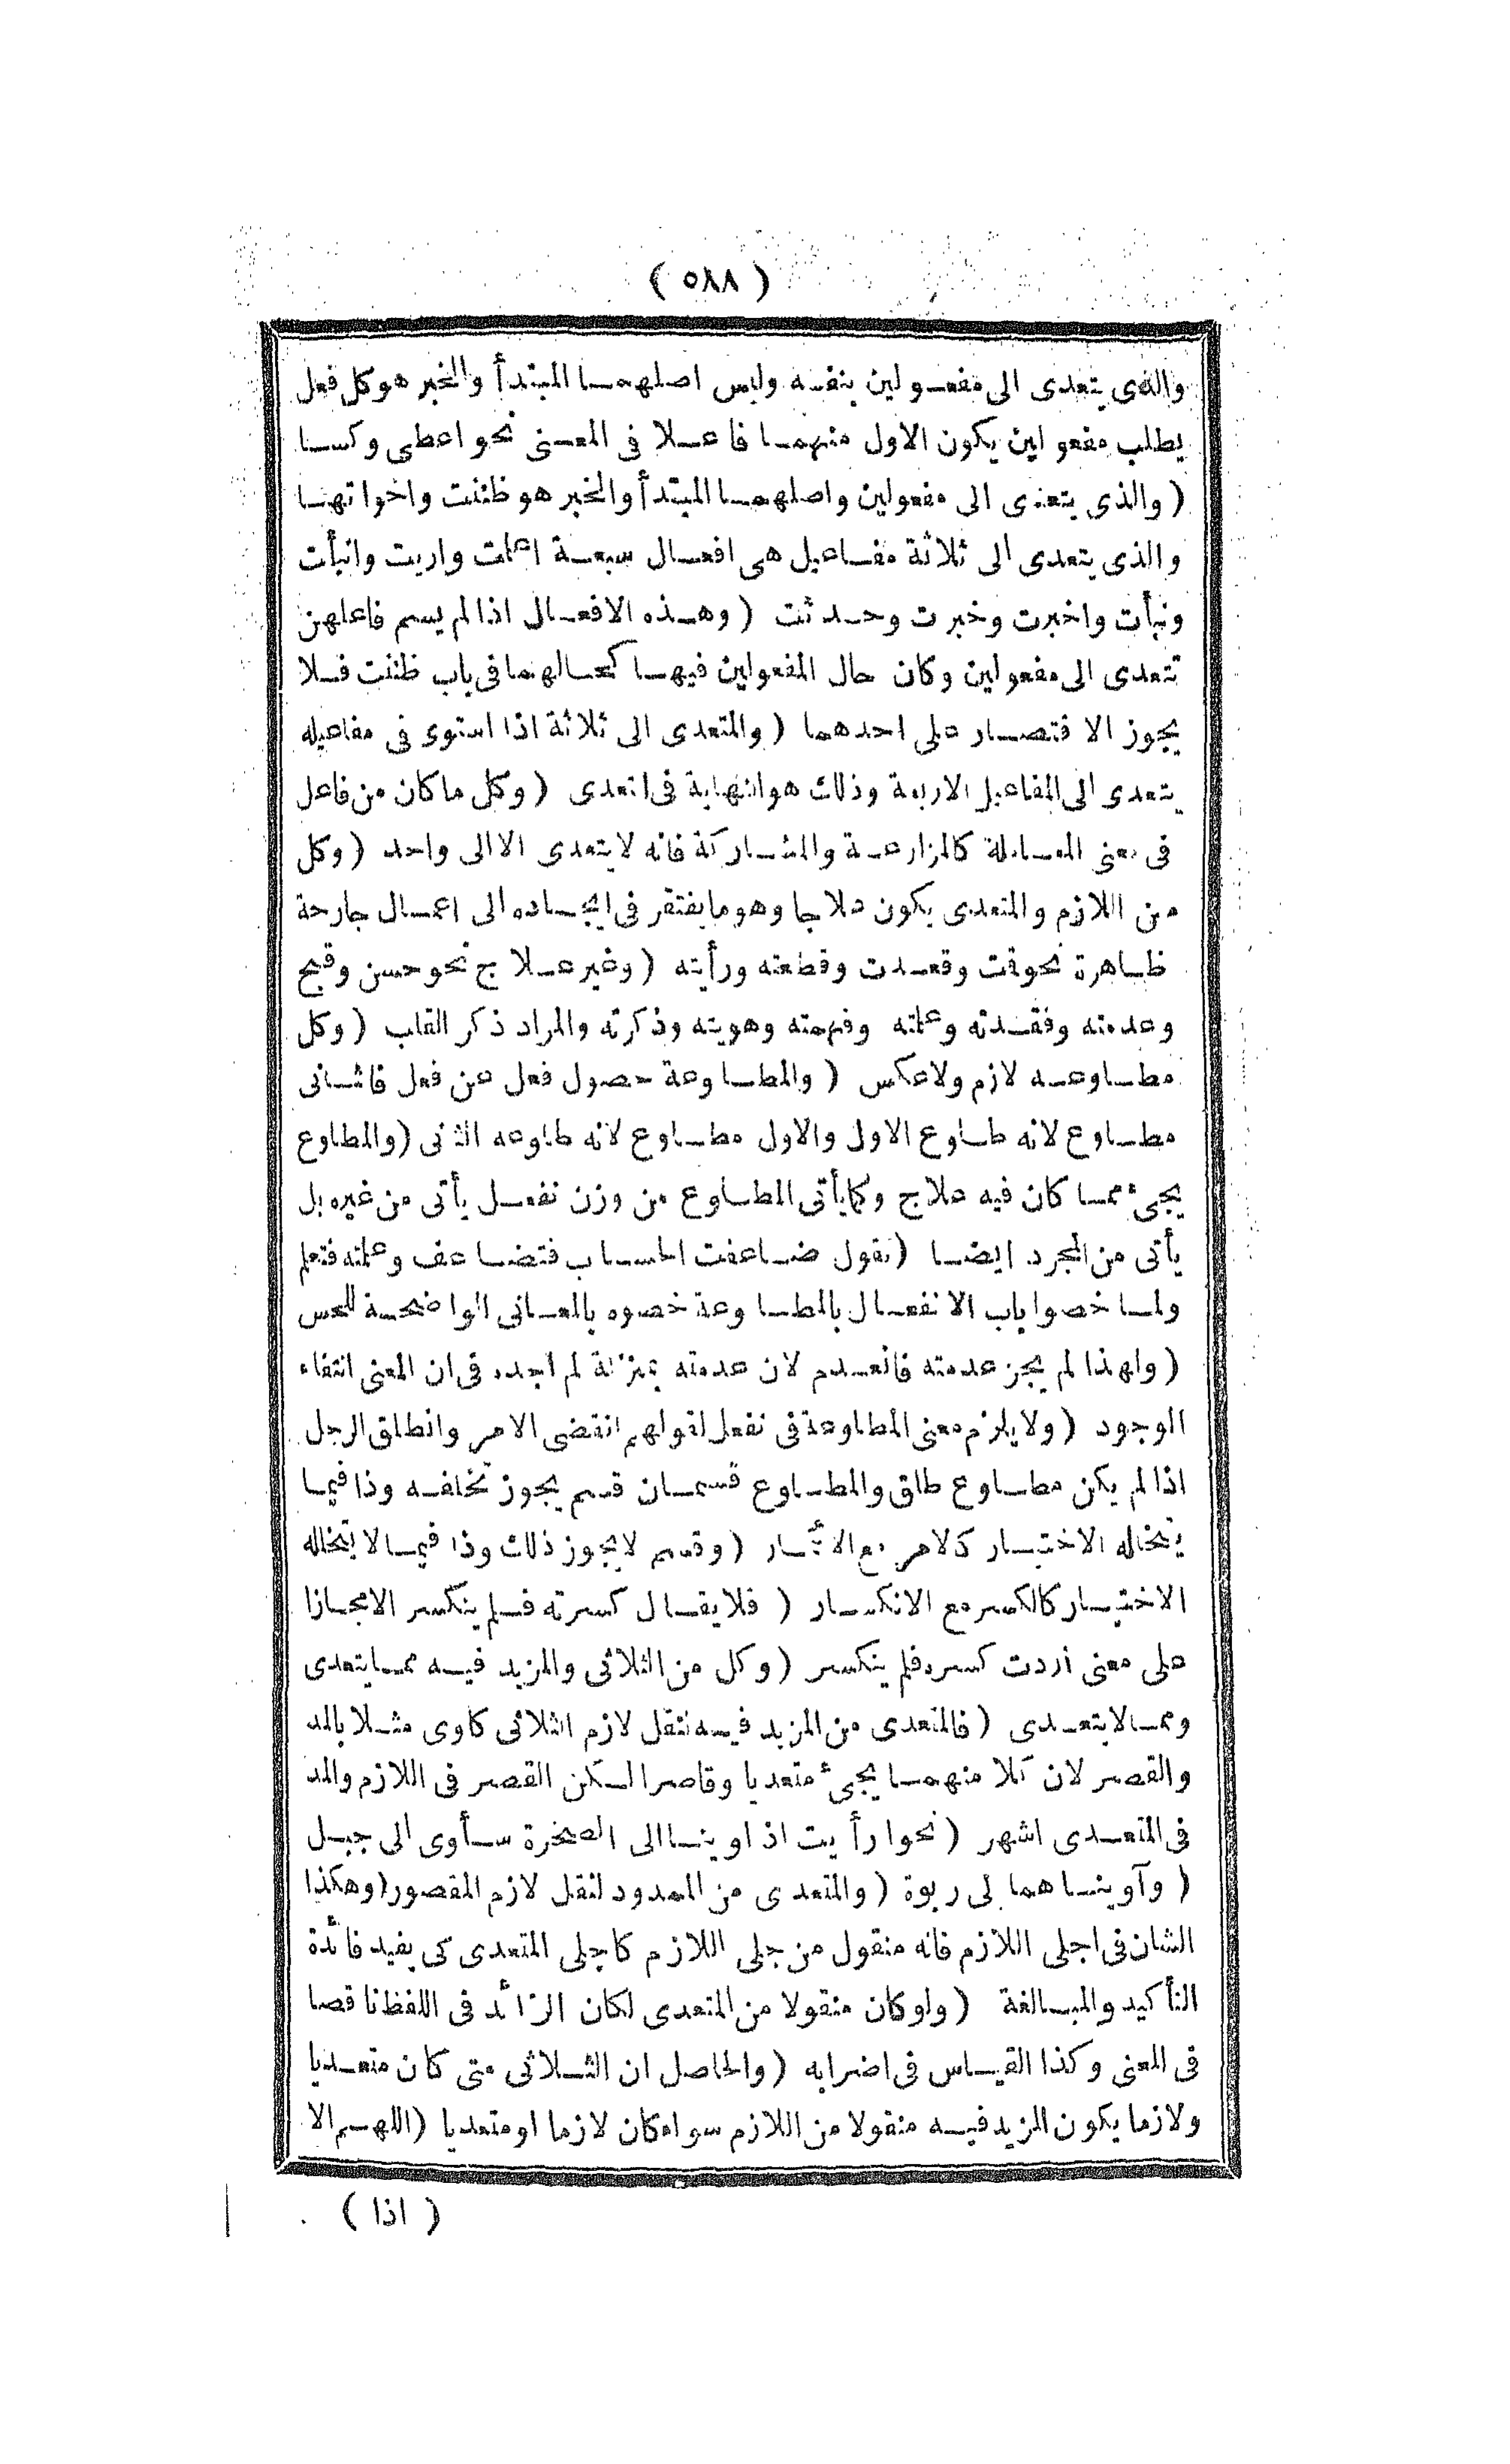 ( ٥٨٨ )
والذى يتعدى الى مفعولين بنفسه وليس اصلهما المبتدأ والخبر هو كل فعل
يطلب مفعولين يكون الاول منهما فاعلا فى المعنى نحو اعطى وكسا
( والذى يتعدى الى مفعولين واصلهما المبتدأ والخبر هو ظننت واخواتها
والذى يتعدى الى ثلاثة مفاعيل هى افعال سبعة اعلمت واريت وانبأت
ونبأت واخبرت وخبرت وحدثت ( وهذه الافعال اذا لم يسم فاعلهن
تتعدى الى مفعولين وكان حال المفعولين فيها كحالهما فى باب ظننت فلا
يجوز الاقتصار على احدهما ( والمتعدى الى ثلاثة اذا استوى فى مفاعيله
يتعدى الى المفاعيل الاربعة وذلك هو انهاية فى التعدى ( وكل ما كان من فاعل
فى معنى المعاملة كالمزارعة والمشاركة فانه لا يتعدى الا الى واحد ( وكل
من اللازم والمتعدى يكون علاجا وهو ما يفتقر فى ايجاده الى اعمال جارحة
ظاهرة نحو قمت وقعدت وقطعته ورأيته ( وغير علاج نحو حسن وقبح
وعدمته وفقدته وعلمته وفهمته وهويته وذكرته والمراد ذكر القلب ( وكل
مطاوعه لازم ولا عكس ( والمطاوعة حصول فعل عن فعل فالثانى
مطاوع لانه طاوع الاول والاول مطاوع لانه طاوعه الثانى ( والمطاوع
يجئ مما كان فيه علاج وكما يأتى المطاوع من وزن نفعل يأتى من غيره بل
يأتى من المجرد ايضا ( تقول ضاعفت الحساب فتضاعف وعلمته فتعلم
ولما خصوا باب الانفعال بالمطاوعة خصوه بالمعانى الواضحة للحس
( ولهذا لم يجز عدمته فانعدم لان عدمته بمنزلة لم اجده فى ان المعنى انتفاء
الوجود ( ولا يلزم معنى المطاوعة فى نفعل لقولهم انقضى الامر وانطلق الرجل
اذا لم يكن مطاوع طلق والمطاوع قسمان قسم يجوز تخلفه وذا فيما
يتخلله الاختيار كالامر مع الائتمار ( وقسم لا يجوز ذلك وذا فيما لا يتخلله
الاختيار كالكسر مع الانكسار ( فلا يقال كسرته فلم ينكسر الا مجازا
على معنى اردت كسره فلم ينكسر ( وكل من الثلاثى والمزيد فيه مما يتعدى
ومما لا يتعدى ( فالمتعدى من المزيد فيه نقل لازم الثلاثى كاوى مثلا بالمد
والقصر لان كلا منهما يجئ متعديا وقاصرا لكن القصر فى اللازم والمد
فى المتعدى اشهر ( نحو ارأيت اذ اوينا الى الصخرة سأوى الى جبل
( وآويناهما الى ربوة ( والمتعدى من الممدود لنقل لازم المقصور ( وهكذا
الشان فى اجلى اللازم فانه منقول من جلى اللازم كاجلى المتعدى كى يفيد فائدة
التأكيد والمبالغة ( ولو كان منقولا من المتعدى لكان الزائد فى اللفظ ناقصا
فى المعنى وكذا القياس فى اضرابه ( والحاصل ان الثلاثى متى كان متعديا
ولازما يكون المزيد فيه منقولا من اللازم سواء كان لازما او متعديا ( اللهم الا
( اذا )